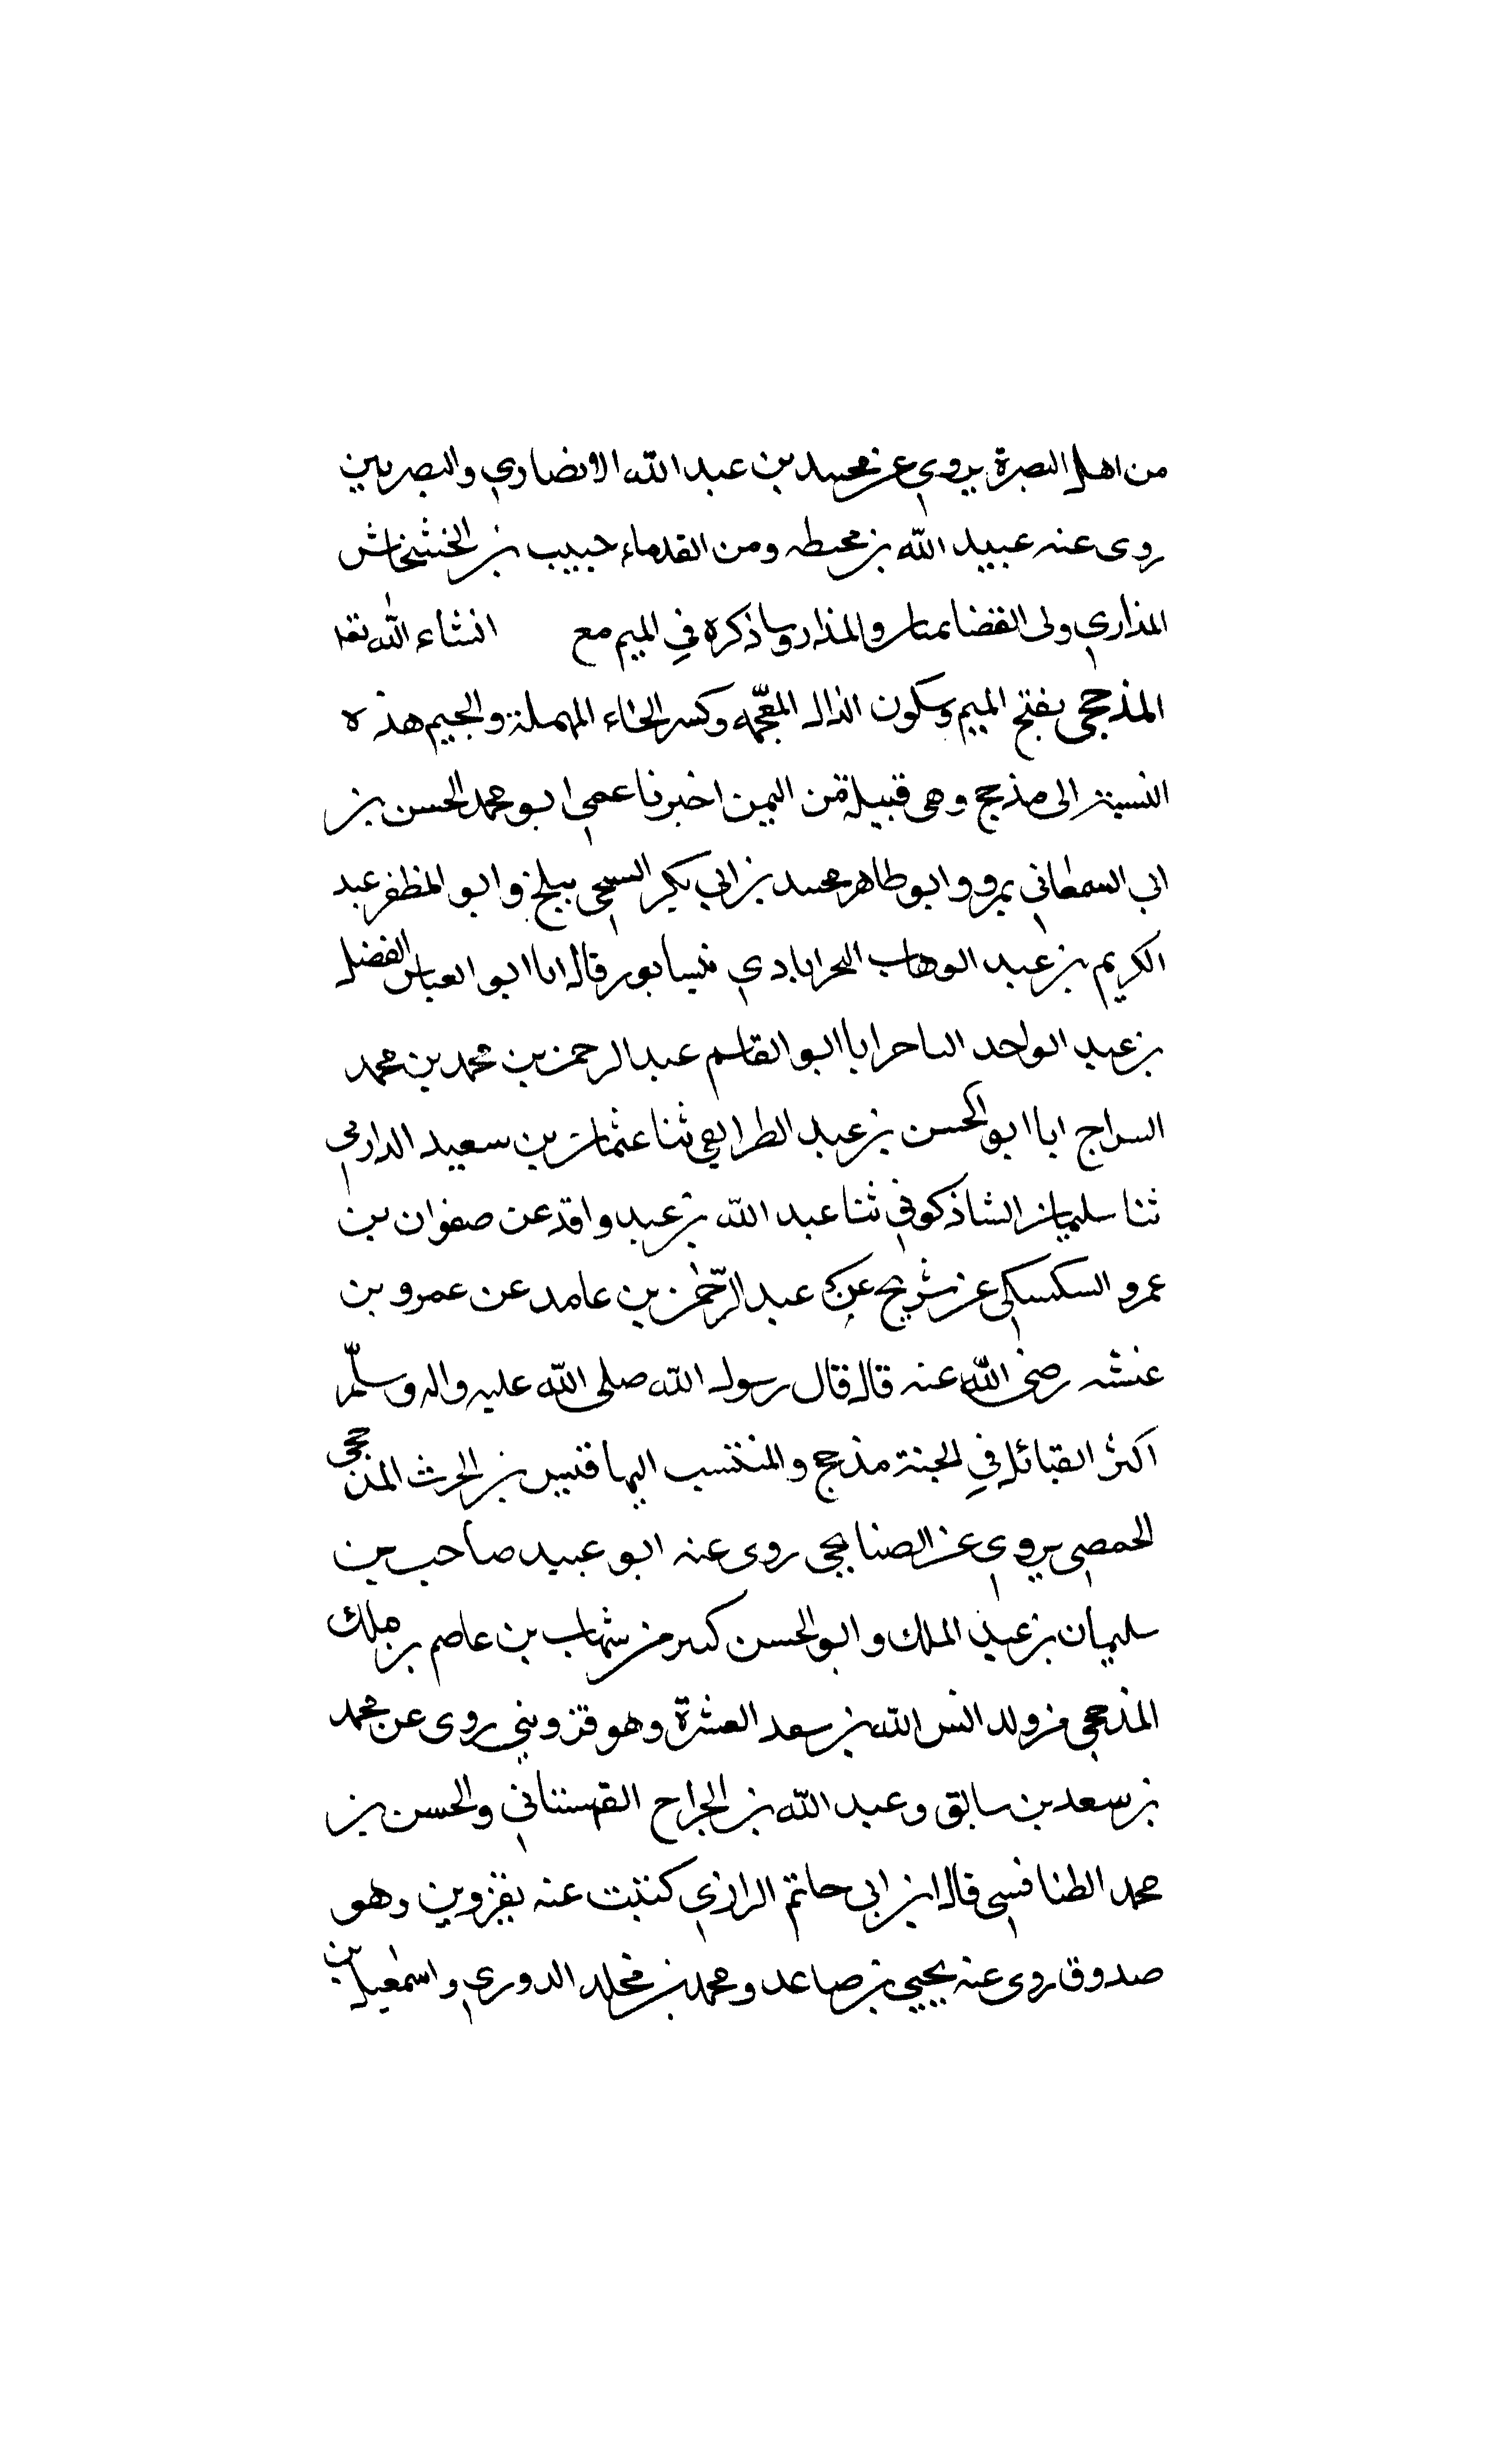 من اهل البصرة يروي عن محمد بن عبد الله الانصاري والبصريين
روى عنه عبيد الله بن محمطه ومن القدماء حبيب بن الخشخاش
المذاري ولى القضا بمنار والمذار وساذكره في الميم مع انشاء الله تعا
المذحجى بفتح الميم وسكون الذال المعجمه وكسر الحاء المهملة والجيم هذه
النسبة الى مذحج وهى قبيلة من اليمن اخبرنا عمي ابو محمد الحسن بن
ابى السمعاني بمرو وابو طاهر محمد بن ابي بكر السبحى ببلخ وابو المظفر عبد
الكريم بن عبد الوهاب البحراباذي بنيسابور قال ابا ابو العباس الفضل
بن عبد الواحد التاجر ابا ابو القاسم عبد الرحمن بن محمد بن محمد
السراج ابا ابو الحسن بن عبد الطرايفي ثنا عثمان بن سعيد الدارمي
ثنا سليمان الشاذكوني ثنا عبد الله بن عبد واقد عن صفوان بن
عمرو السكسكي عن شريح عن عبد الرحمن بن عامد عن عمرو بن
عنبسه رضى الله عنه قال قال رسول الله صلى الله عليه واله وسلم
اكثر القبائل في الجنة مذحج والمنتسب اليها قيس بن الحرث المذحجى
الحمصي يروي عن الصنابحى روى عنه ابو عبيد صاحب بن
سليمان بن عبد الملك وابو الحسن كبير من شهاب بن عاصم بن ملك
المذحجي من ولد انس الله بن سعد العشرة وهو قزويني روى عن محمد
بن سعد بن سابق وعبد الله بن الجراح القهستاني والحسن بن
محمد الطنافسي قال ابن ابى حاتم الرازي كتبت عنه بقزوين وهو
صدوق روى عنه يحيى بن صاعد ومحمد بن مخلد الدوري واسمعيل بن